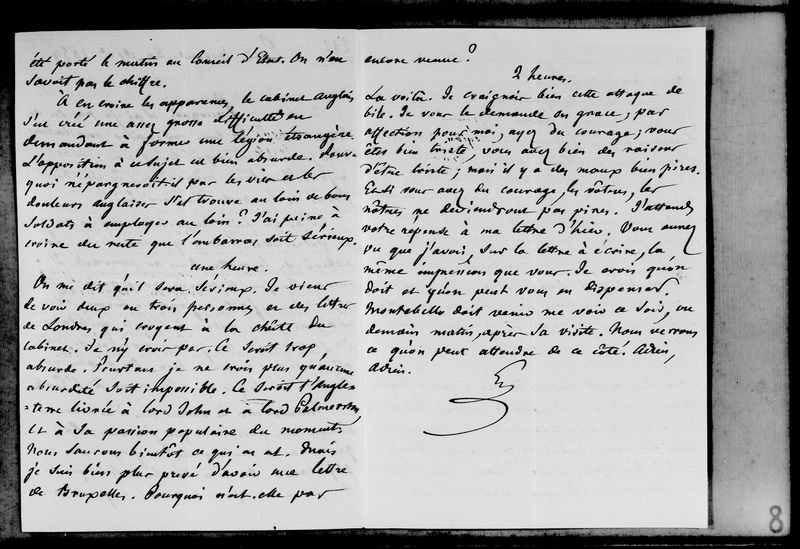 été porté le matin au Conseil d'Etat. On n'en
savoit pas le chiffre.
À en croire les apparences, le cabinet anglais
s'est créé une assez grosse difficulté en
demandant à former une légion étrangère.
L'opposition à ce sujet est bien absurde. Pour-
quoi n'épargneroit-il pas les vies et les
douleurs anglaises s'il trouve au loin de bons
soldats à employer au loin ? J'ai peine à
croire du reste que l'embarras soit sérieux.
une heure.
On me dit qu'il sera sérieux. Je viens
de voir deux ou trois personnes et des lettres
de Londres qui croyent à la chûte du
cabinet. Je n'y crois pas. Ce seroit trop
absurde. Pourtant je ne crois plus qu'aucune
absurdité soit impossible. Ce seroit l'Angle-
=terre livrée à lord John et à lord Palmerston,
et à la passion populaire du moment.
Nous saurons bientôt ce qui en est. Mais
je suis bien plus pressé d'avoir une lettre
de Bruxelles. Pourquoi n'est-elle pas
encore venue ?
2 heures.
La voilà. Je craignois bien cette attaque de
bile. Je vous le demande en grace ; par
affection pour moi, ayez du courage ; vous
êtes bien triste, vous avez bien des raisons
d'être triste ; mais il y a des maux bien pires.
Et si vous avez du courage, les vôtres, les
nôtres ne deviendront pas pires. J'attends
votre réponse à ma lettre d'hier. Vous aurez
vu que j'avois sur la lettre à écrire, la
même impression que vous. Je crois qu'on
doit et qu'on peut vous en dispenser.
Montebello doit venir me voir ce soir, ou
demain matin, après sa visite. Nous verrons
ce qu'on peut attendre de ce côté. Adieu,
Adieu.
8